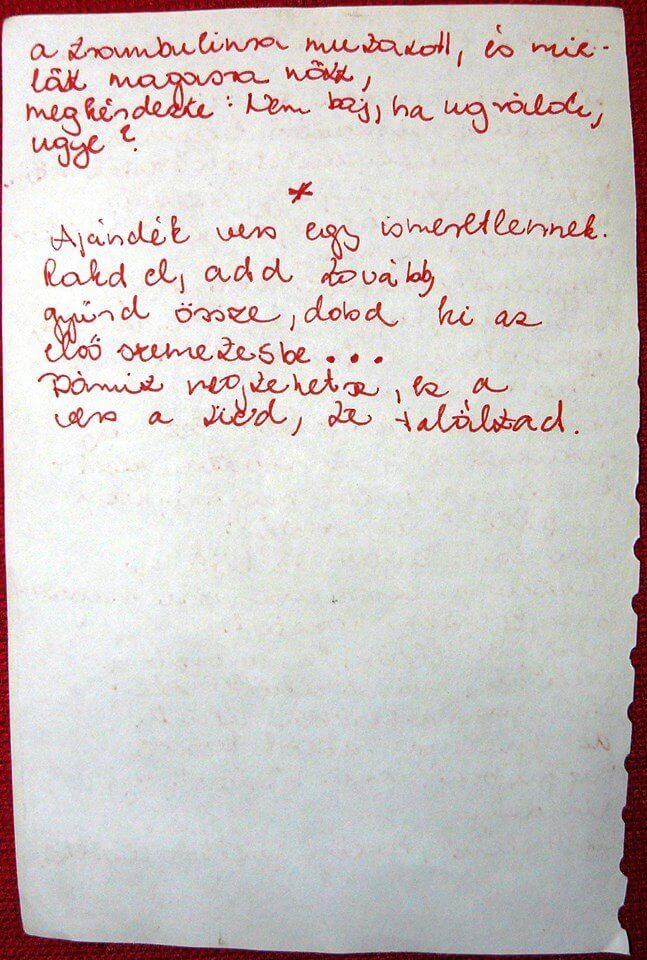 a trambulinra mutatott, és mie-
lőtt magasra nőtt,
megkérdezte: Nem baj, ha ugrálok,
ugye?
*
Ajándék vers egy ismeretlennek.
Rakd el, add tovább,
gyűrd össze, dobd ki az
első szemetesbe...
Bármit megtehetsz, ez a
vers a tiéd, te találtad.